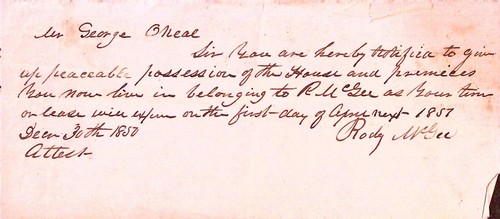 Mr George ONeal
Sir You are hereby Notified to give
up peaceable possession of the House and premeces
You now live in belonging to R McGee as Your term
or lease will expire on the first day of April next 1851
Decr 30th 1850 Rody McGee
Attest